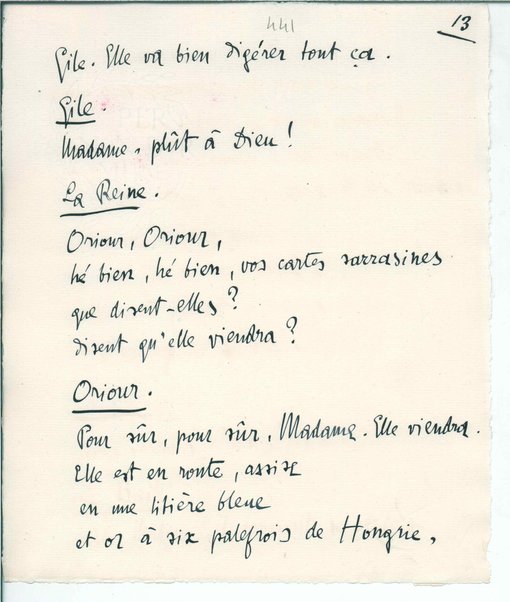 441
13
Gile. Elle va bien digérer tout ça.
Gile.
Madame, plût à Dieu !
La Reine.
Oriour, Oriour,
hé bien, hé bien, vos cartes sarrasines
que disent-elles ?
disent qu'elle viendra ?
Oriour.
Pour sûr, pour sûr, Madame. Elle viendra.
Elle est en route, assise
en une litière bleue
et or à six palefrois de Hongrie,